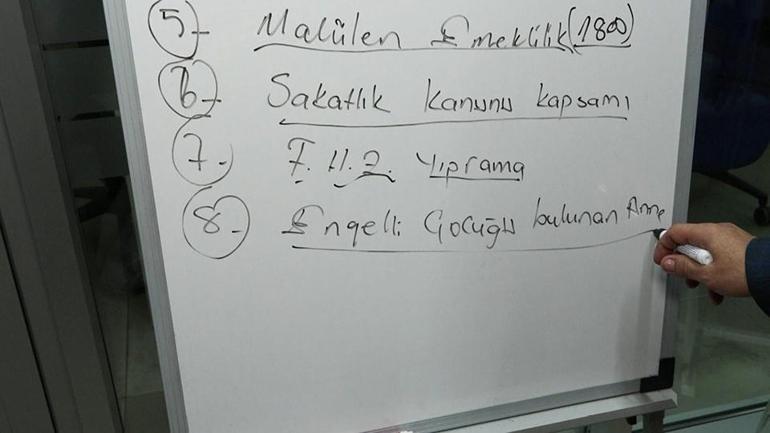 5- Malülen Emeklilik (1800)
6- Sakatlık kanunu kapsamı
7- F.H.Z. Yıprama
8- Engelli Çocuğu bulunan Anne